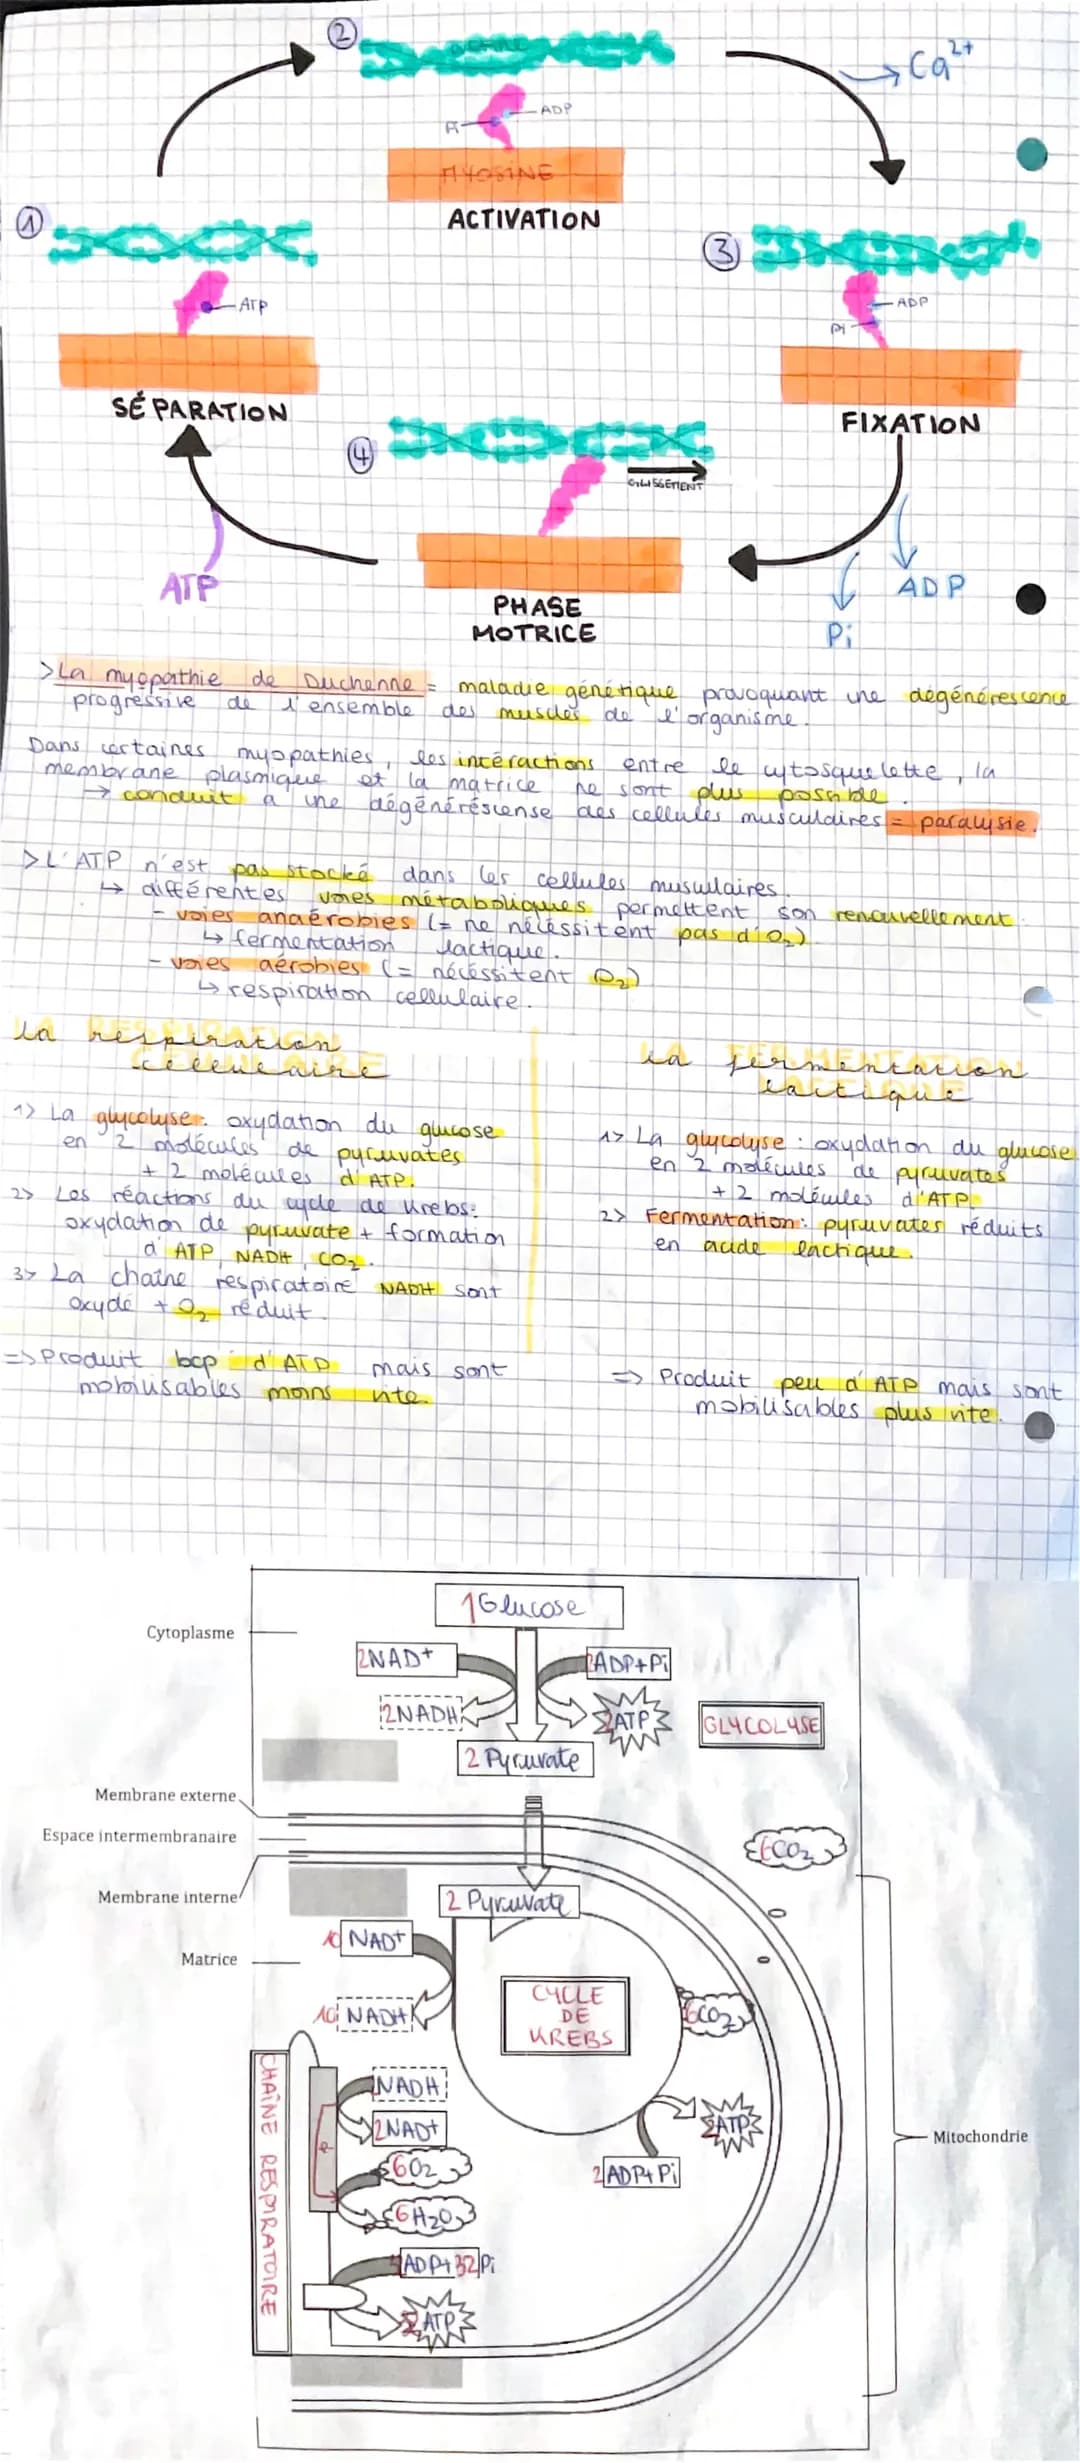 ②
ACTINE
Pi
ADP
MYOSINE
ACTIVATION
Ca²⁺
①
ATP
SÉPARATION
③
ADP
Pi
FIXATION
④
GLISSEMENT
PHASE
MOTRICE
ATP
ADP
Pi
>La myopathie de Duchenne = maladie génétique provoquant une dégénérescence
progressive de l'ensemble des muscles de l'organisme.
Dans certaines myopathies, les intéractions entre le cytosquelette, la
membrane plasmique et la matrice ne sont plus possible.
→ conduit à une dégénéréscense des cellules musculaires = paralysie.
>L'ATP n'est pas stocké dans les cellules musculaires.
↳ différentes voies métaboliques permettent son renouvellement.
- voies anaérobies (= ne nécéssitent pas d'O₂)
↳ fermentation lactique.
- voies aérobies (= nécéssitent O₂)
↳ respiration cellulaire.
La RESPIRATION
CELLULAIRE
1> La glycolyse: oxydation du glucose
en 2 molécules de pyruvates
+ 2 molécules d'ATP.
2> Les réactions du cycle de Krebs:
oxydation de pyruvate + formation
d'ATP, NADH, CO₂.
3> La chaîne respiratoire NADH sont
oxydé + O₂ réduit.
=> Produit bcp d'ATP mais sont
mobilisables moins vite.
La FERMENTATION
LACTIQUE
1> La glycolyse : oxydation du glucose
en 2 molécules de pyruvates
+ 2 molécules d'ATP
2> Fermentation: pyruvates réduits
en acide lactique.
=> Produit peu d'ATP mais sont
mobilisables plus vite.
1 Glucose
Cytoplasme
2NAD+
2ADP+Pi
2NADH
2ATP
GLYCOLYSE
2 Pyruvate
Membrane externe
Espace intermembranaire
6CO₂
Membrane interne
2 Pyruvate
10 NAD+
Matrice
10 NADH
CYCLE
DE
KREBS
6CO₂
CHAÎNE RESPIRATOIRE
NADH
2NAD+
e-
6O₂
6H₂O
2ATP
2ADP+Pi
Mitochondrie
ADP+32Pi
ATP